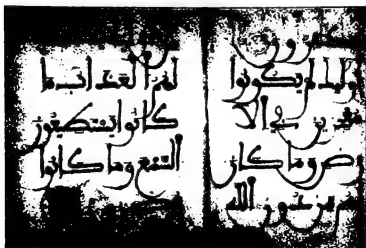 اوليك لم يكونوا
معجزين في الا
رض وما كان
لهم من دون الله
لهم العذاب ما
كانوا يستطيعون
السمع وما كانوا